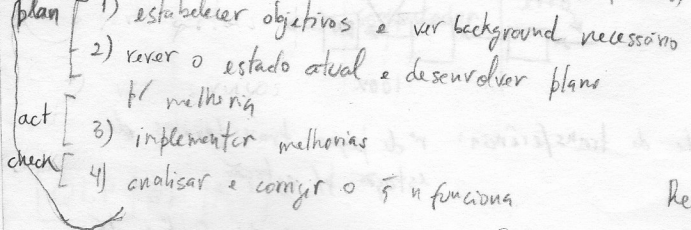 plan 1) estabelecer objetivos e ver background necessário
2) rever o estado atual e desenvolver plano
p/ melhoria
act 3) implementar melhorias
check 4) analisar e corrigir o q̄ n funciona
Re